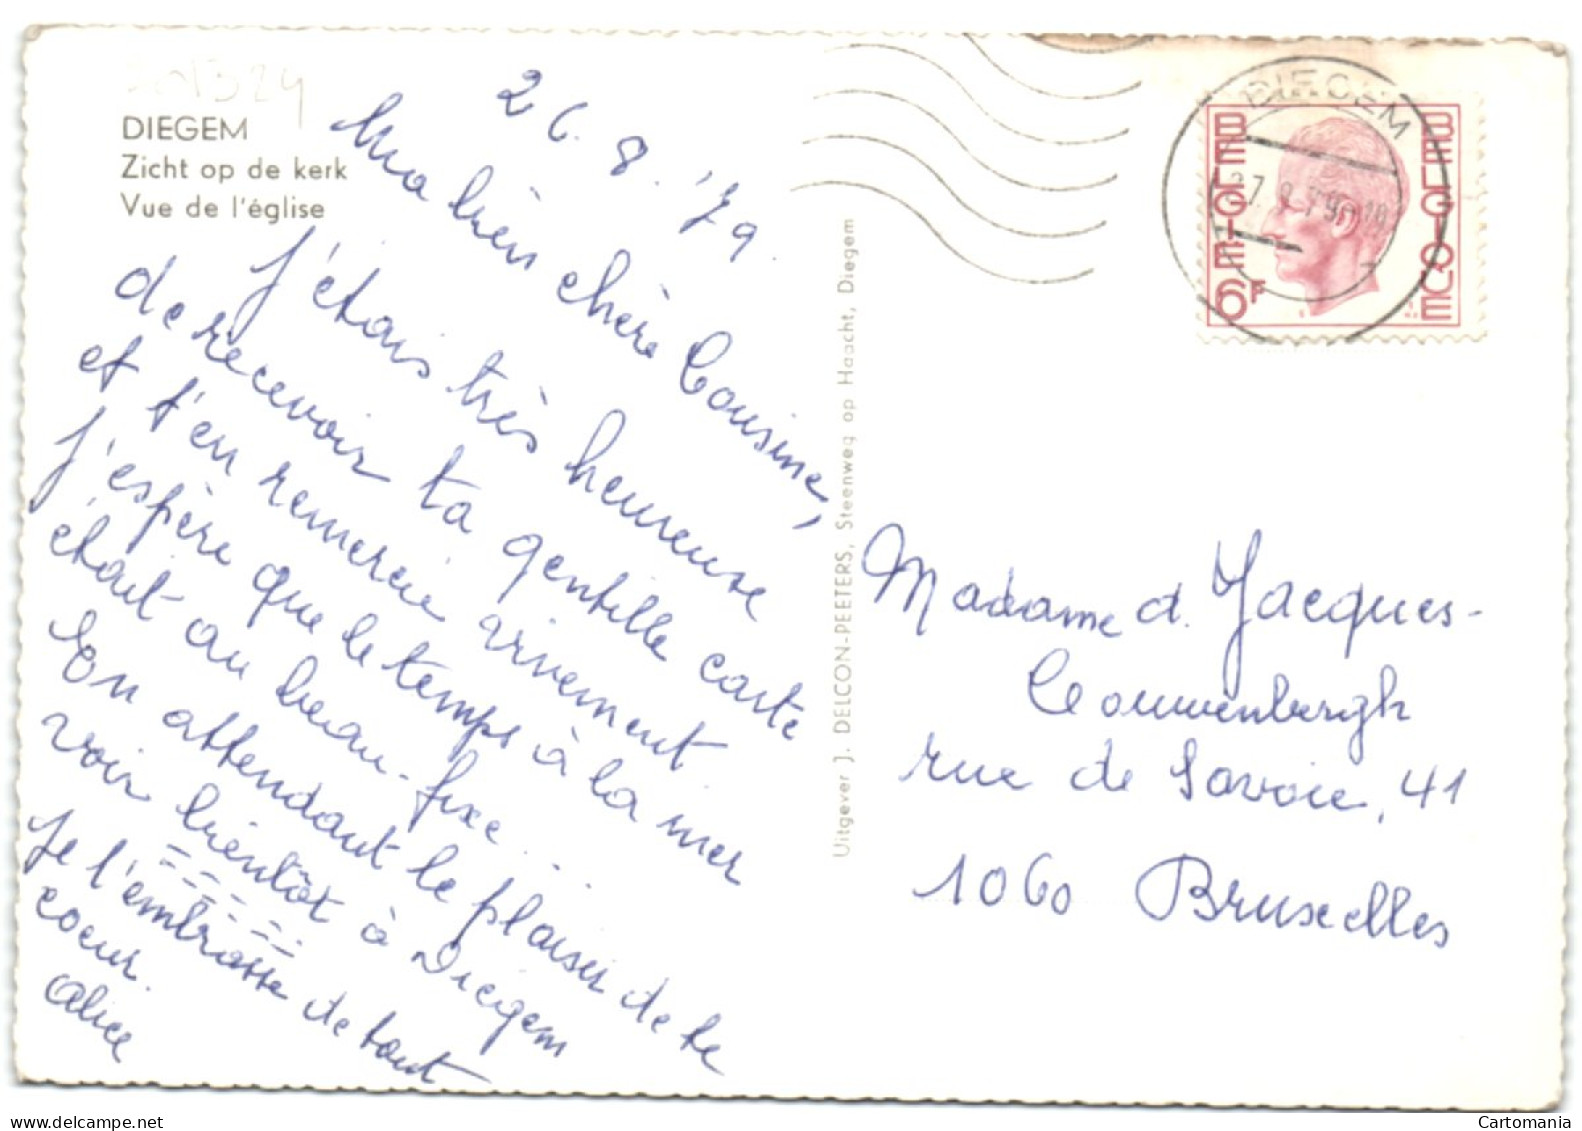 DIEGEM
Zicht op de kerk
Vue de l'église
26.8.'79.
Ma bien chère Cousine,
J'étais très heureuse
de recevoir ta gentille carte
et t'en remercie vivement
J'espère que le temps à la mer
était au beau-fixe...
En attendant le plaisir de te
voir bientôt à Diegem
Je t'embrasse de tout
coeur.
Alice
Uitgever J. DELCON-PEETERS, Steenweg op Haacht, Diegem
DIEGEM
BELGIE
BELGIQUE
6F
Madame d. Jacques-
Couwenbergh
rue de Savoie, 41
1060 Bruxelles
Cartomania